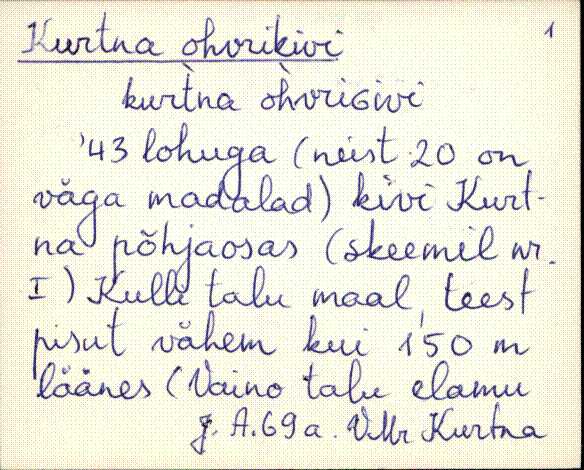 Kurtna ohvrikivi 1
kurt̀na òhvriGivi
'43 lohuga (neist 20 on
väga madalad) kivi Kurt-
na põhjaosas (skeemil nr.
I) Kulli talu maal, teest
pisut vähem kui 150 m
läänes (Vaino talu elamu
J. A. 69 a. VMr Kurtna